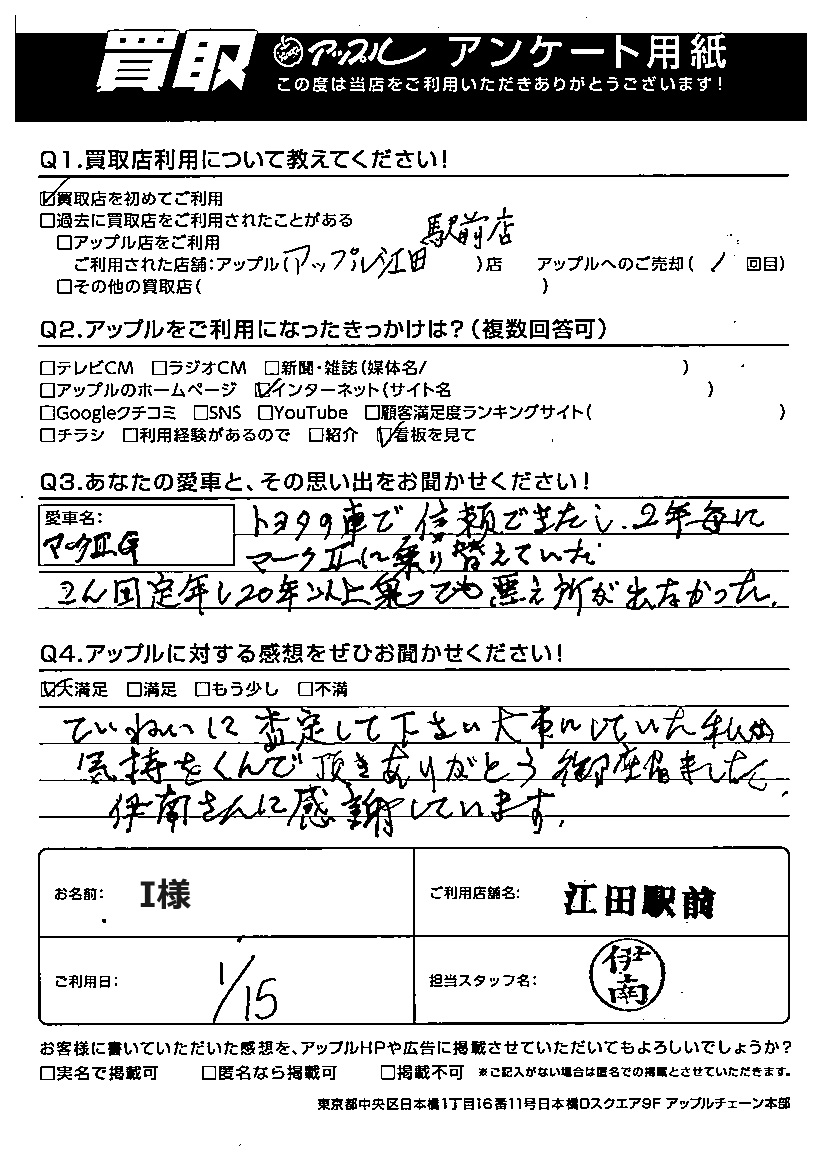 買取 アップル アンケート用紙
この度は当店をご利用いただきありがとうございます!
Q1.買取店利用について教えてください!
☑買取店を初めてご利用
□過去に買取店をご利用されたことがある
□アップル店をご利用
駅前店
ご利用された店舗:アップル(アップル江田)店 アップルへのご売却( 1 回目)
□その他の買取店( )
Q2.アップルをご利用になったきっかけは?(複数回答可)
□テレビCM □ラジオCM □新聞・雑誌(媒体名/ )
□アップルのホームページ ☑インターネット(サイト名 )
□Googleクチコミ □SNS □YouTube □顧客満足度ランキングサイト( )
□チラシ □利用経験があるので □紹介 ☑看板を見て
Q3.あなたの愛車と、その思い出をお聞かせください!
愛車名:
マークⅡG
トヨタの車で信頼できたし、2年毎に
マークⅡに乗り替えていた
こん回定年し20年以上乗っても悪え所が出なかった。
Q4.アップルに対する感想をぜひお聞かせください!
☑大満足 □満足 □もう少し □不満
ていねいに査定して下さい大事にしていた私の
気持をくんで頂きありがとう御座居ました
伊南さんに感謝しています。
お名前: I様
ご利用店舗名: 江田駅前
ご利用日: 1/15
担当スタッフ名: 伊南
お客様に書いていただいた感想を、アップルHPや広告に掲載させていただいてもよろしいでしょうか?
□実名で掲載可 □匿名なら掲載可 □掲載不可 ※ご記入がない場合は匿名での掲載とさせていただきます。
東京都中央区日本橋1丁目16番11号日本橋Dスクエア9F アップルチェーン本部